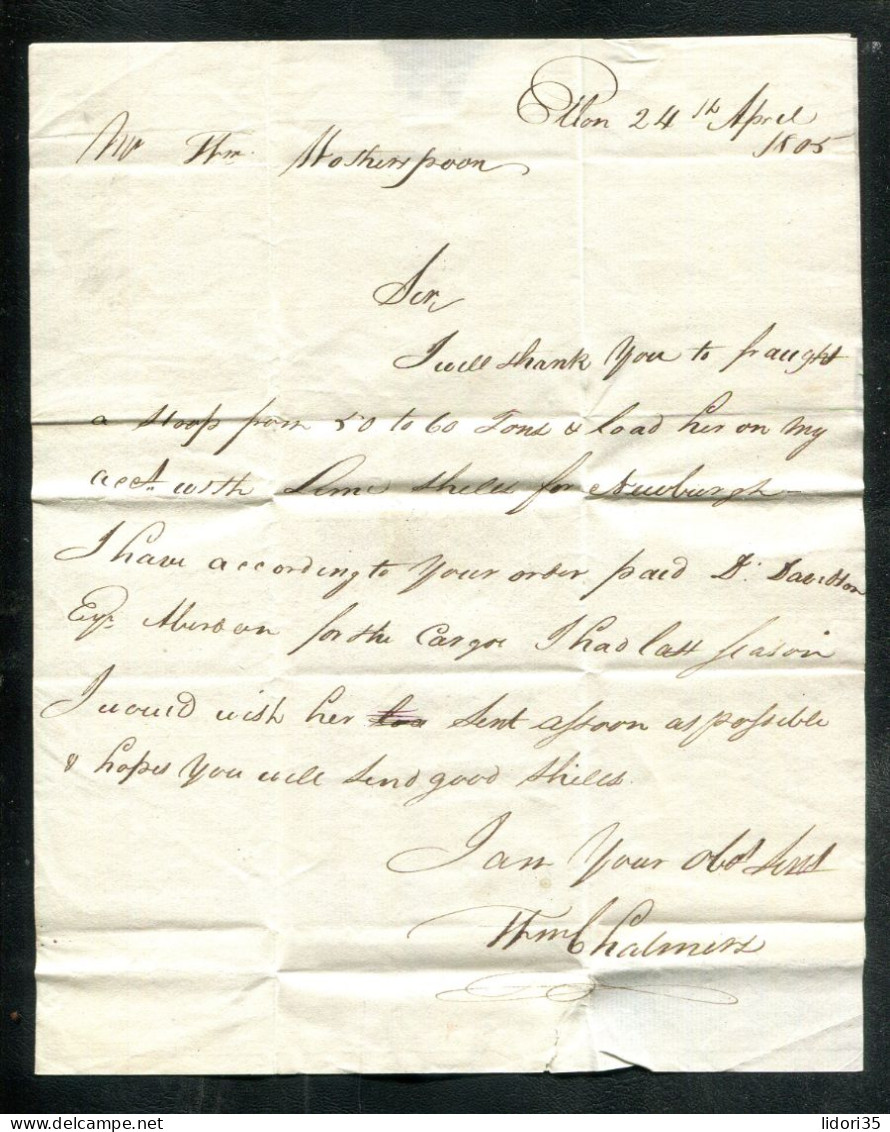 Ellon 24th April
1805
Mr Wm. Wotherspoon
Sir,
I will thank You to fraught
a sloop from 50 to 60 Tons & load her on my
acct. with Lime shells for Newburgh
I have according to Your order paid D. Davidson
Esqr Aberdean for the Cargoe I had last season
I would wish her sent assoon as possible
& hopes You will send good shells
I am Your obdt Servt
Wm Chalmers
www.delcampe.net
lidori35